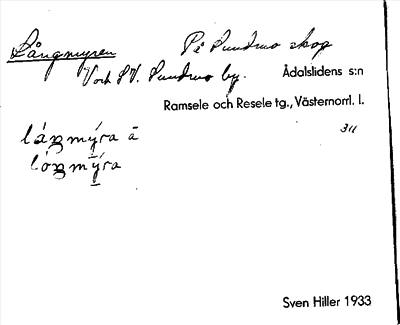 Långmyren På Sundmo skog
V och SV. Sundmo by. Ådalslidens s:n
Ramsele och Resele tg., Västernorrl. l.
311
låŋmýra ä
lóŋmýra
Sven Hiller 1933